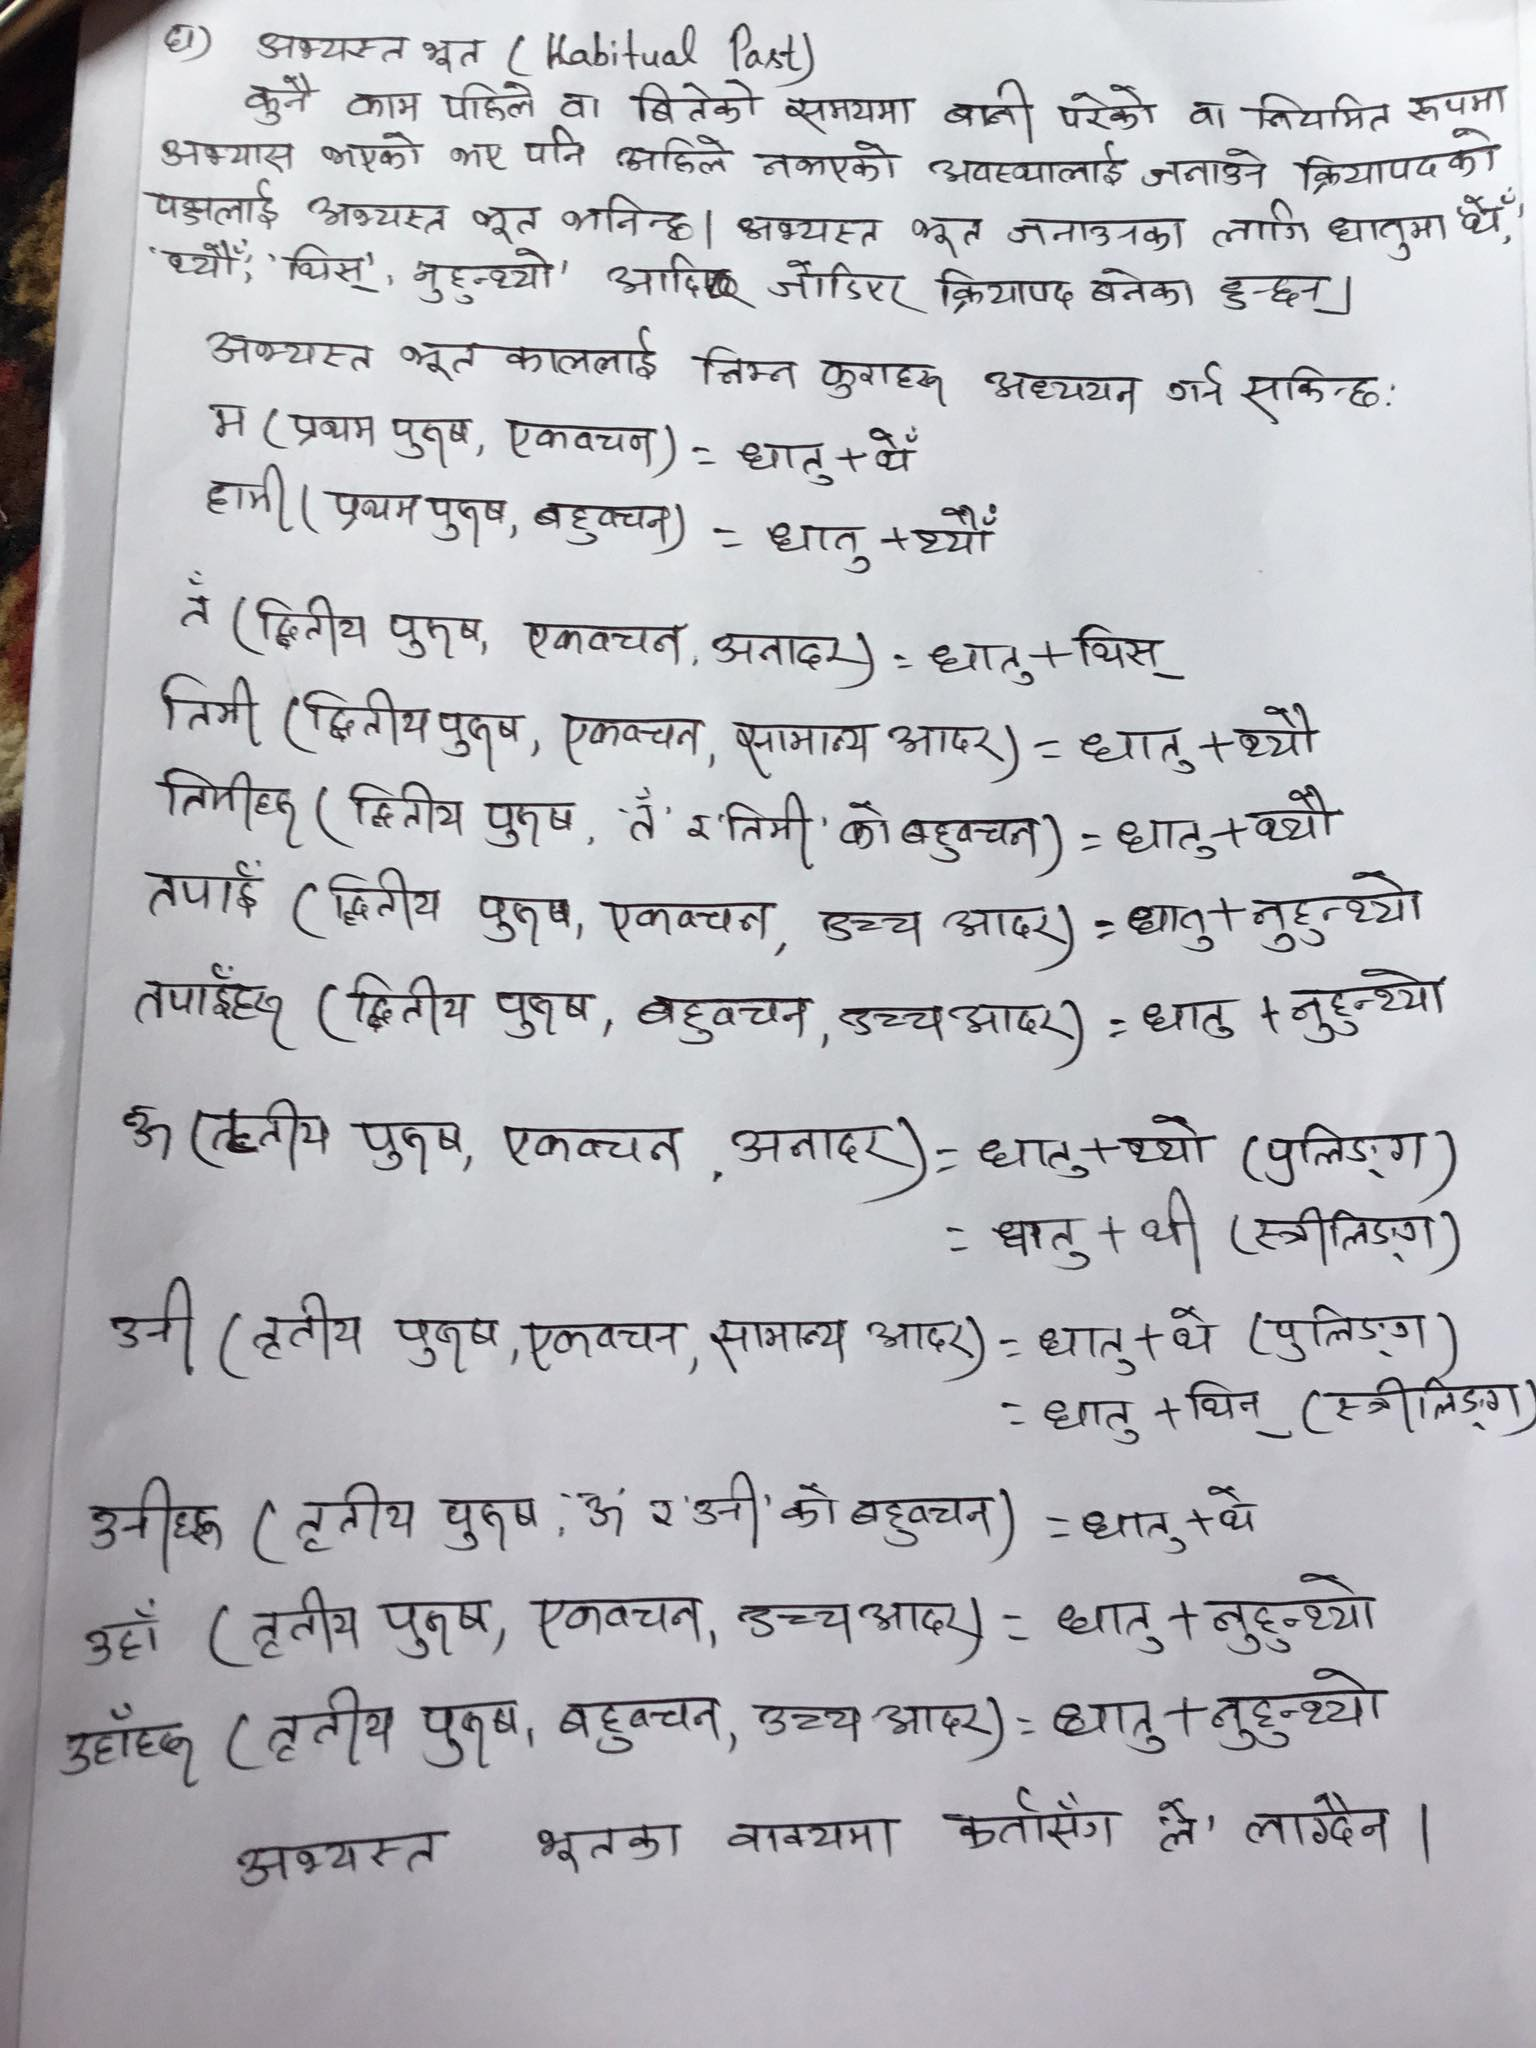 घ) अभ्यस्त भूत (Habitual Past)
कुनै काम पहिले वा बितेको समयमा बानी परेको वा नियमित रूपमा
अभ्यास भएको भए पनि अहिले नभएको अवस्थालाई जनाउने क्रियापदको
पक्षलाई अभ्यस्त भूत भनिन्छ। अभ्यस्त भूत जनाउनका लागि धातुमा 'थेँ',
'थ्यौँ', 'थिस्', 'नुहुन्थ्यो' आदि जोडिएर क्रियापद बनेका हुन्छन्।
अभ्यस्त भूत काललाई निम्न कुराहरू अध्ययन गर्न सकिन्छ:
म (प्रथम पुरूष, एकवचन) = धातु + थेँ
हामी (प्रथम पुरूष, बहुवचन) = धातु + थ्यौँ
तँ (द्वितीय पुरूष, एकवचन, अनादर) = धातु + थिस्
तिमी (द्वितीय पुरूष, एकवचन, सामान्य आदर) = धातु + थ्यौ
तिमीहरू (द्वितीय पुरूष, 'तँ' र 'तिमी' को बहुवचन) = धातु + थ्यौ
तपाईँ (द्वितीय पुरूष, एकवचन, उच्च आदर) = धातु + नुहुन्थ्यो
तपाईँहरू (द्वितीय पुरूष, बहुवचन, उच्च आदर) = धातु + नुहुन्थ्यो
ऊ (तृतीय पुरूष, एकवचन, अनादर) = धातु + थ्यो (पुलिङ्ग)
= धातु + थी (स्त्रीलिङ्ग)
उनी (तृतीय पुरूष, एकवचन, सामान्य आदर) = धातु + थे (पुलिङ्ग)
= धातु + थिन् (स्त्रीलिङ्ग)
उनीहरू (तृतीय पुरूष, 'ऊ' र 'उनी' को बहुवचन) = धातु + थे
उहाँ (तृतीय पुरूष, एकवचन, उच्च आदर) = धातु + नुहुन्थ्यो
उहाँहरू (तृतीय पुरूष, बहुवचन, उच्च आदर) = धातु + नुहुन्थ्यो
अभ्यस्त भूतका वाक्यमा कर्तासँग 'ले' लाग्दैन।